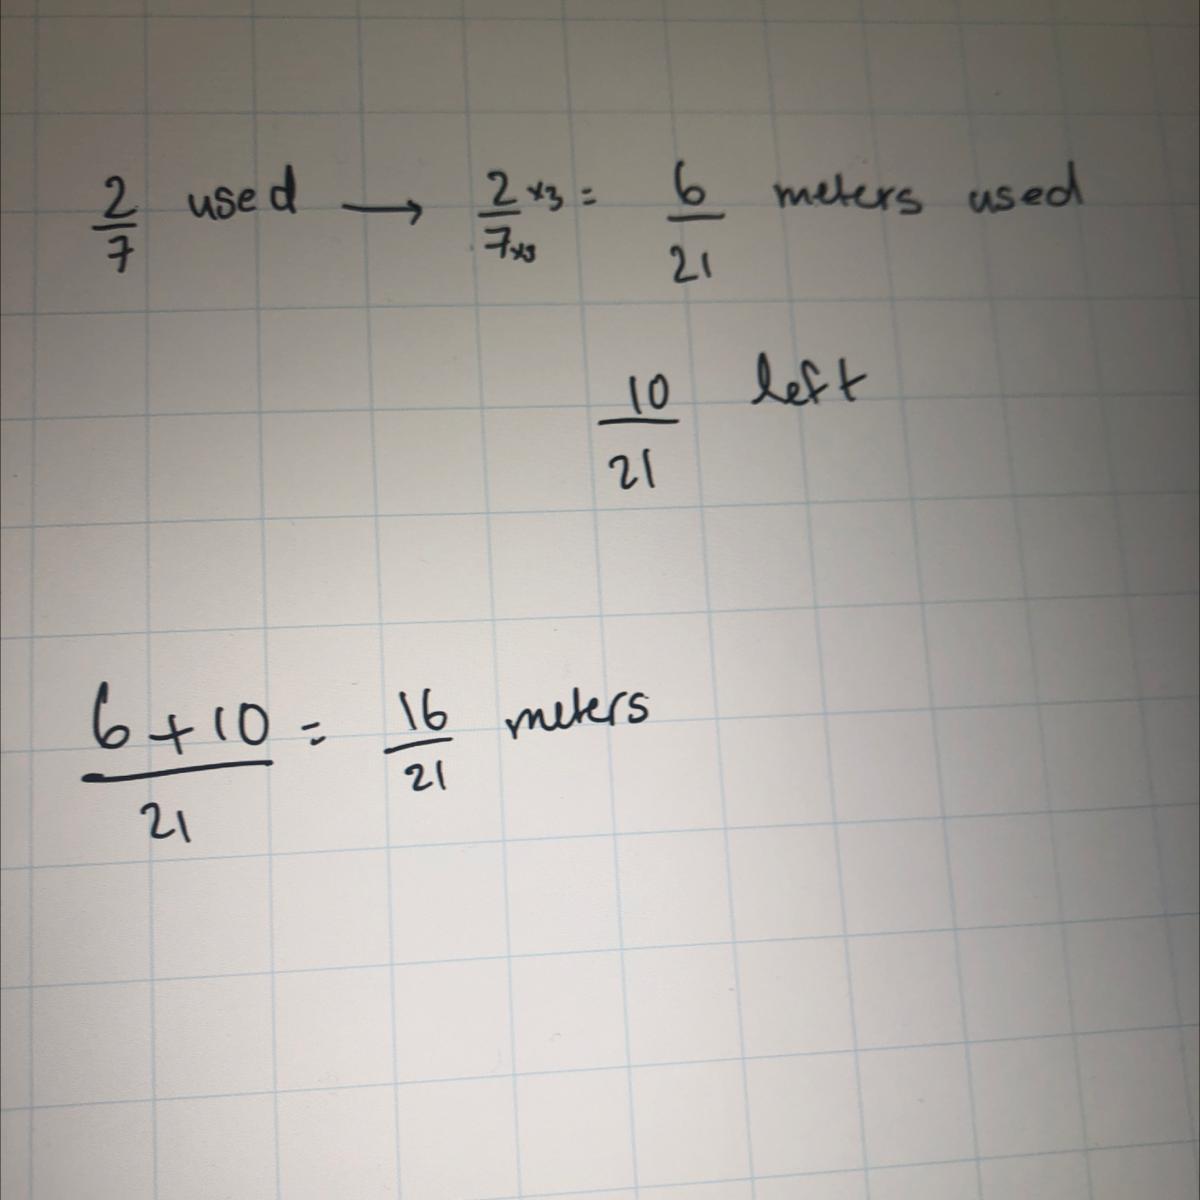 2/7 used → 2×3/7×3 = 6/21 meters used
10/21 left
6+10/21 = 16/21 meters